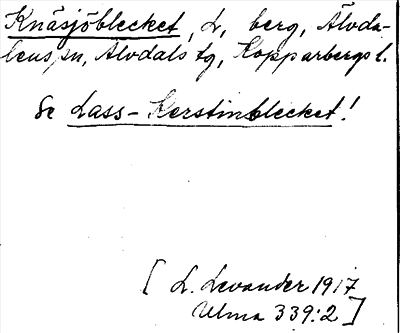 Knäsjöblecket, L, berg, Älvda-
lens sn, Älvdals tg, Kopparbergs l.
Se Lass-Kerstinblecket!
[L. Levander 1917
Ulma 339:2]